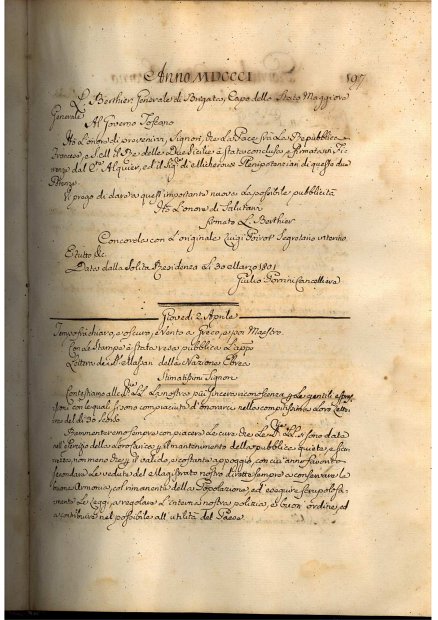 Anno MDCCCI
197
L. Berthier Generale di Brigata, Capo dello Stato Maggiore
Generale
Al Governo Toscano
Ho L'onore di prevenirvi, Signori, che La Pace frà La Repubblica
Francese, e S. M. il Rè delle Due Sicilie è stata conclusa e firmata in Fi-
renze dal C. Alquier, ed il Sig. di Micheroux Plenipotenziari di queste due
Potenze
Vi prego di dare a questi importante nuova La possibile pubblicità
Ho L'onore di Salutarvi
firmato L. Berthier
Concorda con L'originale Luigi Poirot Segretario interino
E tutto &c.
Data dalla Solita Residenza li 30 Marzo 1801
Giulio Cancelliere
Giovedì 2 Aprile
Tempo frà chiaro, e oscuro, e vento a Greco, e poi Maestro
Con Le Stampe è stata resa pubblica L'app.
Lettera dei della Nazione Ebrea
Stimatissimi Signori
Contestiamo alle La nostra più sincera riconoscenza le gentili espres-
sioni con le quali si sono compiaciuti d'onorarci nella compitissima Loro Lette-
ra del dì 30 scorso
Rammenteremo sempre con piacere Le cure, che Le si sono date
mantenimento della pubblica quiete, e sicu-
rezza, non meno che il valido, e costante appoggio, con cui anno favorito
secondare Le vedute del Magistrato nostro dirette sempre a conservare la
buona Armonia, col rimanente della Popolazione, ed eseguire scrupolosa-
mente Le Leggi, a regolare L'interna nostra polizia, e buon ordine, ed
a contribuire nel possibile all'utilità del Paese